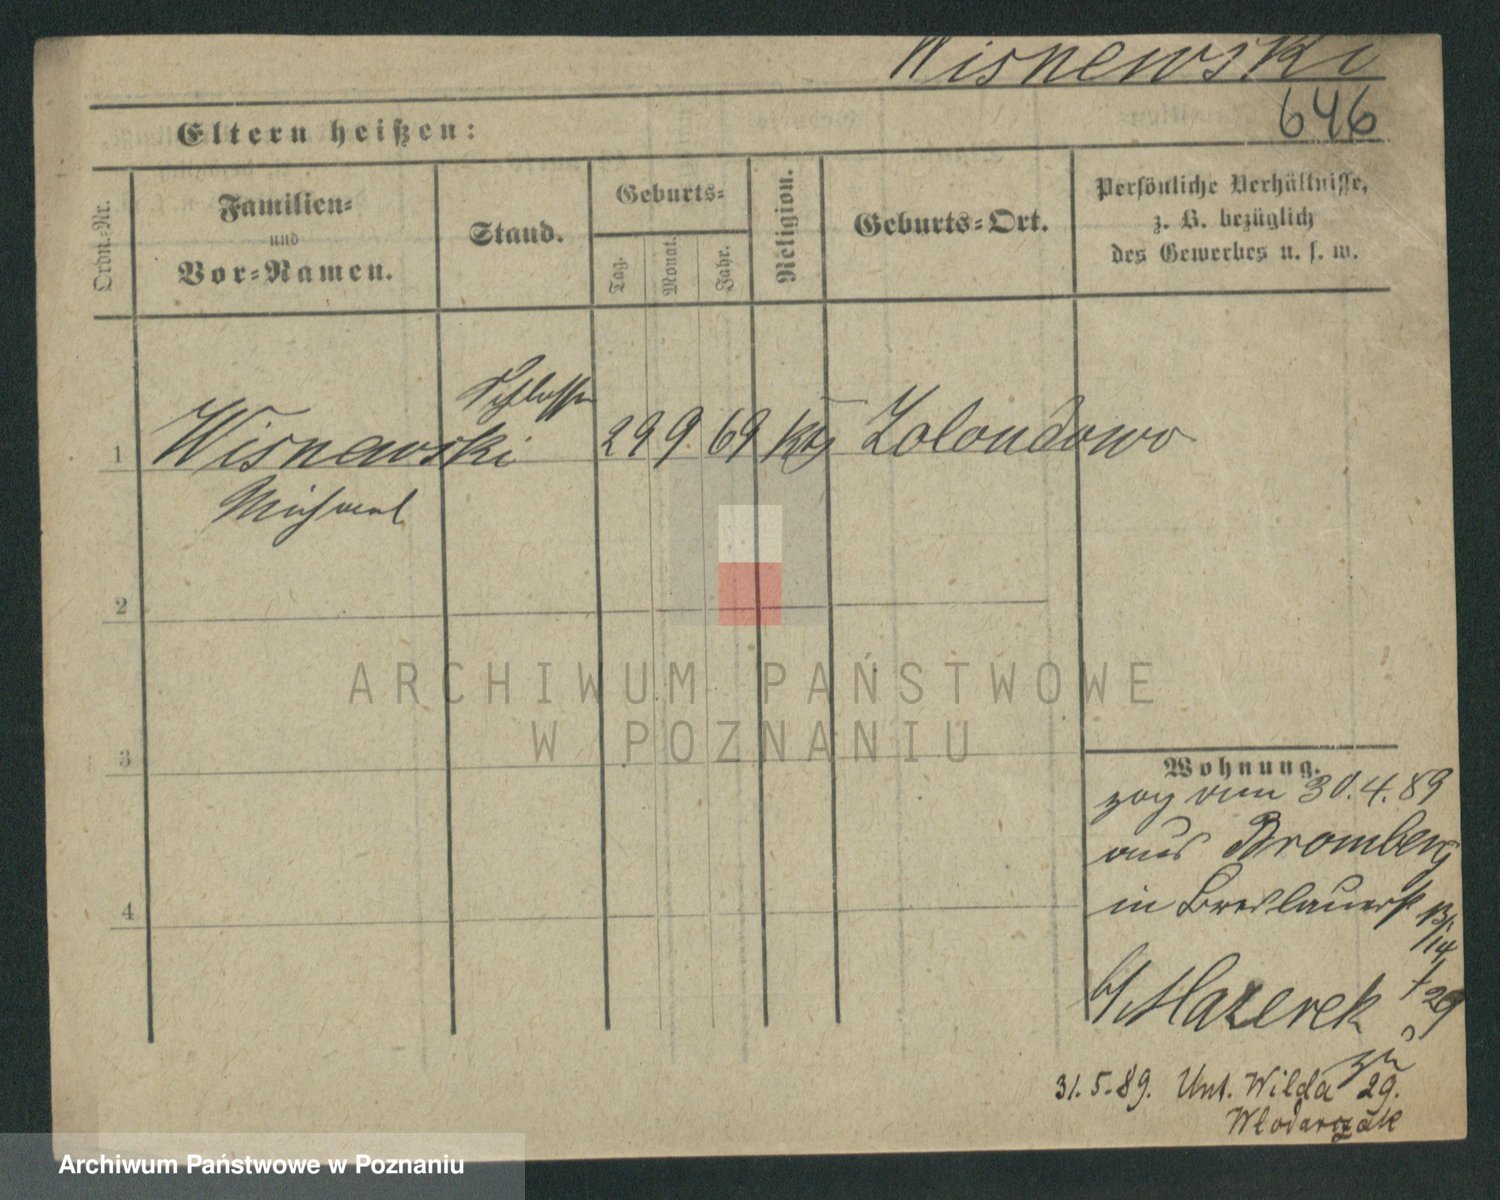 Wisnewski
646
Eltern heißen:
Ordn.-Nr.
Familien-
und
Vor-Namen.
Stand.
Geburts-
Tag.
Monat.
Jahr.
Religion.
Geburts-Ort.
Persönliche Verhältnisse,
z. B. bezüglich
des Gewerbes u. s. w.
1 Wisnewski Schlosser 29 9 69 kth Zolondowo
Michael
2
3
4
Wohnung.
zog am 30.4.89
aus Bromberg
in Breslauerst
b/ Mazerek
31.5.89. Unt. Wilda 29.
Wlodarczak
ARCHIWUM PAŃSTWOWE
W POZNANIU
Archiwum Państwowe w Poznaniu